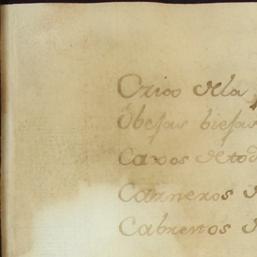 Crioo dela
Obejas biejas
Caxos de tod
Carneros d
Cabrettos d